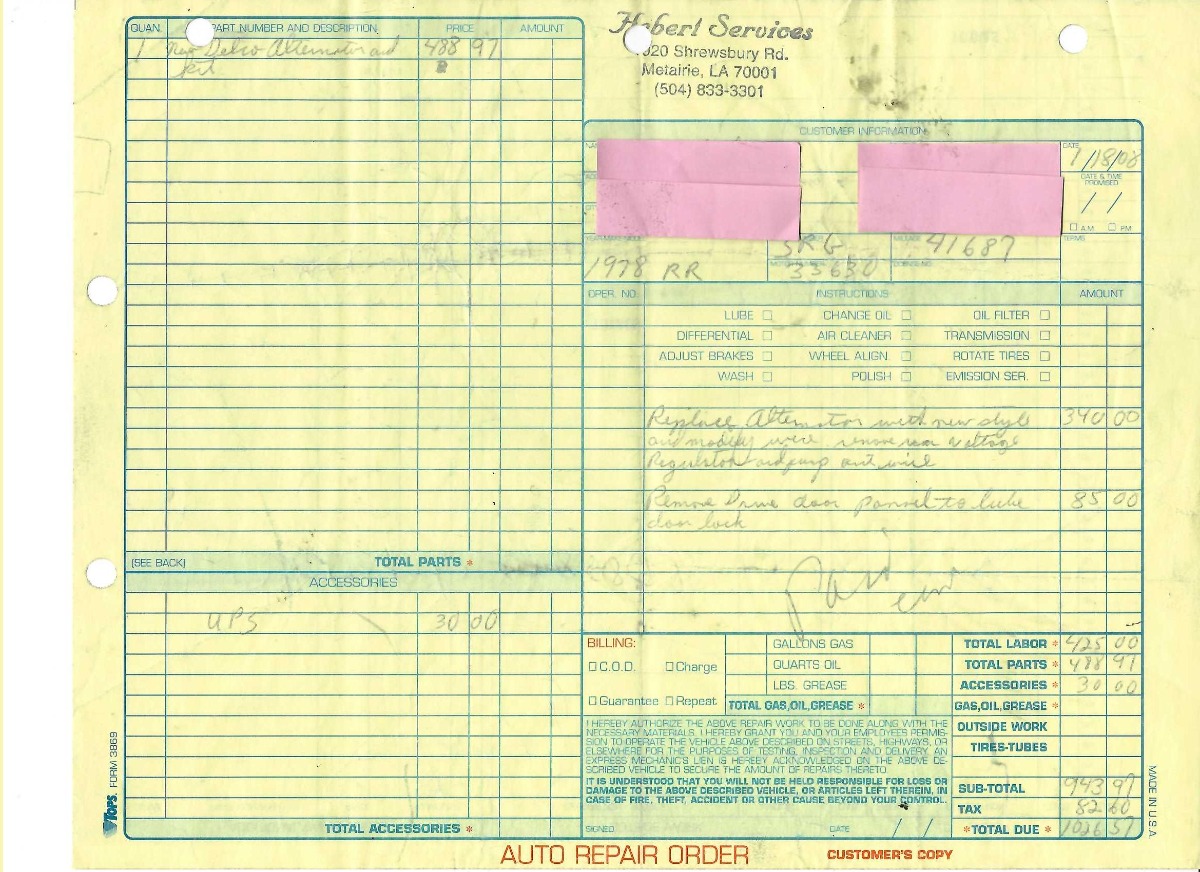 QUAN. PART NUMBER AND DESCRIPTION PRICE AMOUNT
1 new Delco Alternator and 488 97
kit
(SEE BACK) TOTAL PARTS *
ACCESSORIES
UPS 30 00
TOTAL ACCESSORIES *
TOPS. FORM 3869
Hebert Services
020 Shrewsbury Rd.
Metairie, LA 70001
(504) 833-3301
CUSTOMER INFORMATION
DATE
1/18/08
DATE & TIME
PROMISED
/ /
☐ A.M ☐ PM
SRG MILEAGE 41687 TERMS
1978 RR 33630
OPER. NO. INSTRUCTIONS AMOUNT
LUBE ☐ CHANGE OIL ☐ OIL FILTER ☐
DIFFERENTIAL ☐ AIR CLEANER ☐ TRANSMISSION ☐
ADJUST BRAKES ☐ WHEEL ALIGN. ☐ ROTATE TIRES ☐
WASH ☐ POLISH ☐ EMISSION SER. ☐
Replace Alternator with new style 340 00
and modify wire, remove voltage
Regulator and wire
Remove Drive door pannel to lube 85 00
door lock
Paid
BILLING:
☐ C.O.D. ☐ Charge
☐ Guarantee ☐ Repeat
GALLONS GAS
QUARTS OIL
LBS. GREASE
TOTAL GAS,OIL,GREASE *
TOTAL LABOR * 425 00
TOTAL PARTS * 488 97
ACCESSORIES * 30 00
GAS,OIL,GREASE *
OUTSIDE WORK
TIRES-TUBES
SUB-TOTAL 943 97
TAX 82 60
*TOTAL DUE * 1026 57
I HEREBY AUTHORIZE THE ABOVE REPAIR WORK TO BE DONE ALONG WITH THE
NECESSARY MATERIALS. I HEREBY GRANT YOU AND YOUR EMPLOYEES PERMIS-
SION TO OPERATE THE VEHICLE ABOVE DESCRIBED ON STREETS, HIGHWAYS, OR
ELSEWHERE FOR THE PURPOSES OF TESTING, INSPECTION AND DELIVERY. AN
EXPRESS MECHANIC'S LIEN IS HEREBY ACKNOWLEDGED ON THE ABOVE DE-
SCRIBED VEHICLE TO SECURE THE AMOUNT OF REPAIRS THERETO.
IT IS UNDERSTOOD THAT YOU WILL NOT BE HELD RESPONSIBLE FOR LOSS OR
DAMAGE TO THE ABOVE DESCRIBED VEHICLE, OR ARTICLES LEFT THEREIN, IN
CASE OF FIRE, THEFT, ACCIDENT OR OTHER CAUSE BEYOND YOUR CONTROL.
SIGNED DATE / /
MADE IN U.S.A.
AUTO REPAIR ORDER CUSTOMER'S COPY